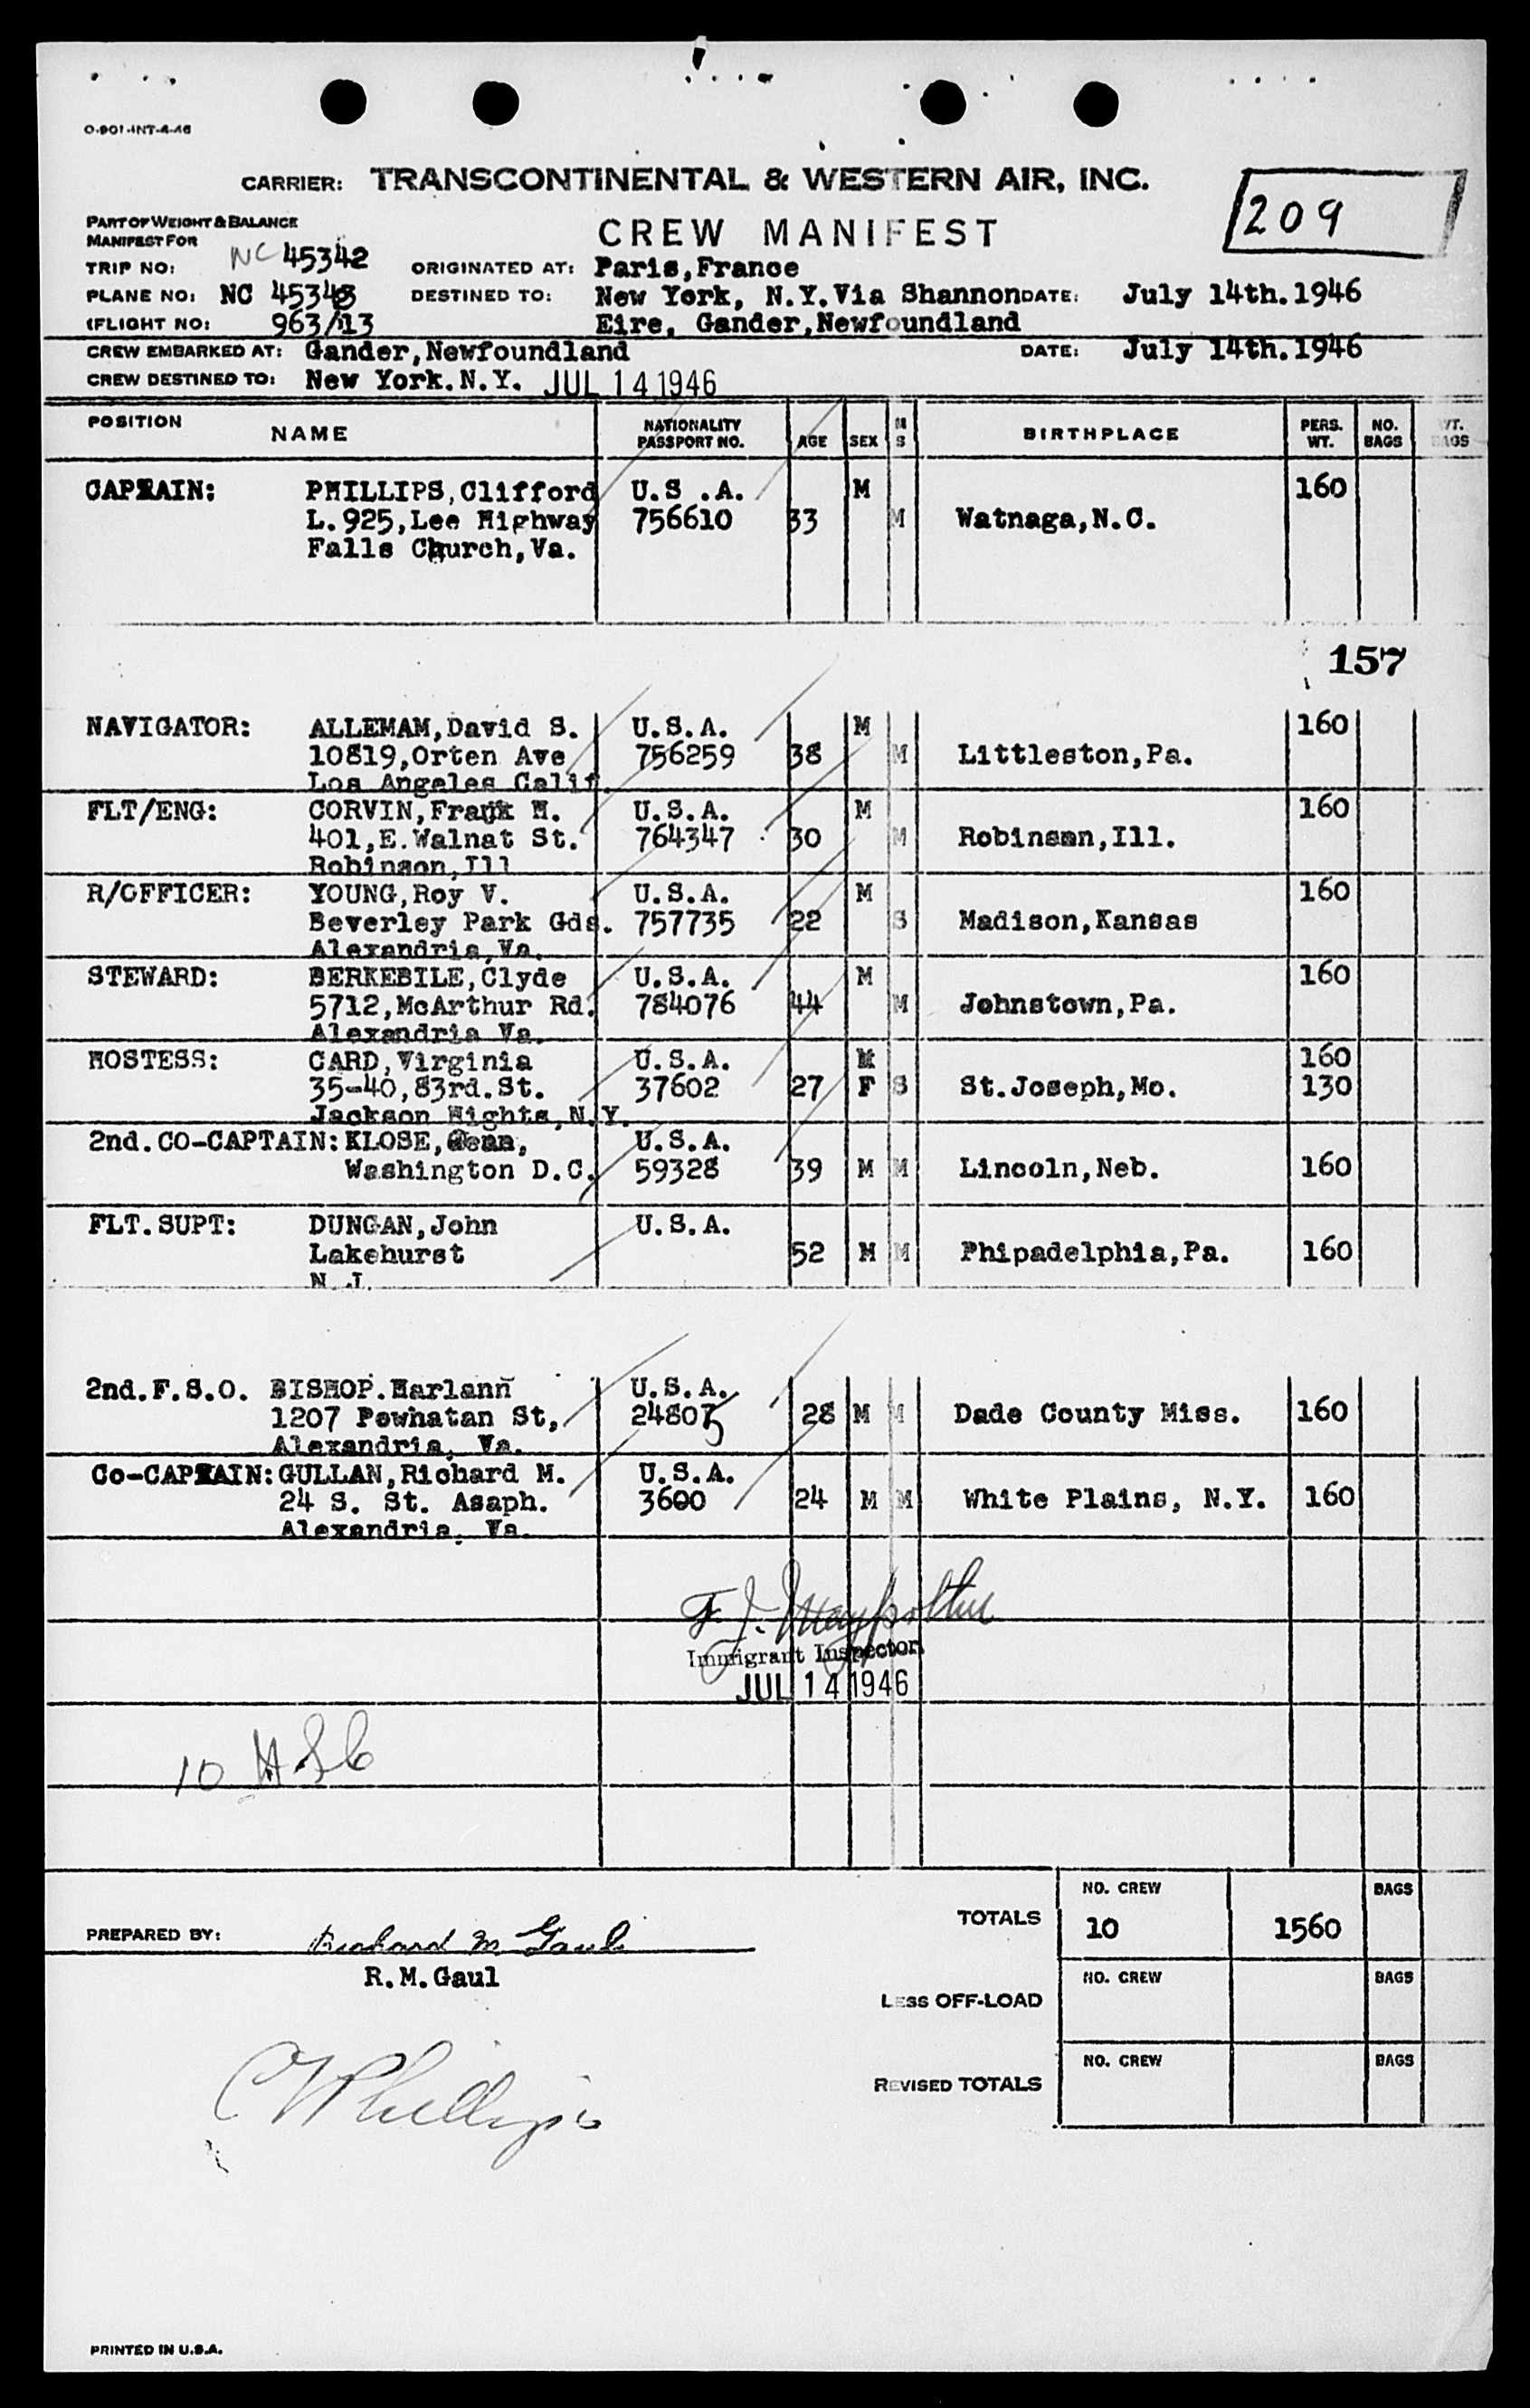 O-901-INT-4-46
CARRIER: TRANSCONTINENTAL & WESTERN AIR, INC.
209
PART OF WEIGHT & BALANCE
MANIFEST FOR
CREW MANIFEST
TRIP NO: NC 45342 ORIGINATED AT: Paris,France
PLANE NO: NC 45343 DESTINED TO: New York, N.Y.Via Shannon DATE: July 14th.1946
FLIGHT NO: 963/13 Eire, Gander,Newfoundland
CREW EMBARKED AT: Gander,Newfoundland DATE: July 14th.1946
CREW DESTINED TO: New York.N.Y. JUL 14 1946
POSITION NAME NATIONALITY PASSPORT NO. AGE SEX M S BIRTHPLACE PERS. WT. NO. BAGS WT. BAGS
CAPTAIN: PHILLIPS,Clifford U.S .A. M 160
L.925,Lee Highway 756610 33 M Watnaga,N.C.
Falls Church,Va.
157
NAVIGATOR: ALLEMAM,David S. U.S.A. M 160
10819,Orten Ave 756259 38 M Littleston,Pa.
Los Angeles Calif.
FLT/ENG: CORVIN,Frank H. U.S.A. M 160
401,E.Walnat St. 764347 30 M Robinson,Ill.
Robinson,Ill
R/OFFICER: YOUNG,Roy V. U.S.A. M 160
Beverley Park Gds. 757735 22 S Madison,Kansas
Alexandria,Va.
STEWARD: BERKEBILE,Clyde U.S.A. M 160
5712,McArthur Rd. 784076 44 M Johnstown,Pa.
Alexandria Va.
HOSTESS: CARD,Virginia U.S.A. M 160
35-40,83rd.St. 37602 27 F S St.Joseph,Mo. 130
Jackson Hights,N.Y.
2nd.CO-CAPTAIN: KLOSE, U.S.A.
Washington D.C. 59328 39 M M Lincoln,Neb. 160
FLT.SUPT: DUNGAN,John U.S.A.
Lakehurst 52 M M Phipadelphia,Pa. 160
N.J.
2nd.F.S.O. BISHOP.Harlann U.S.A.
1207 Powhatan St, 24805 28 M M Dade County Miss. 160
Alexandria, Va.
Co-CAPTAIN: GULLAN,Richard M. U.S.A.
24 S. St. Asaph. 3600 24 M M White Plains, N.Y. 160
Alexandria, Va.
F. J.
Immigrant Inspector
JUL 14 1946
10
NO. CREW BAGS
TOTALS 10 1560
PREPARED BY: Richard M. Gaul
R.M.Gaul
NO. CREW BAGS
LESS OFF-LOAD
C Phillips
NO. CREW BAGS
REVISED TOTALS
PRINTED IN U.S.A.